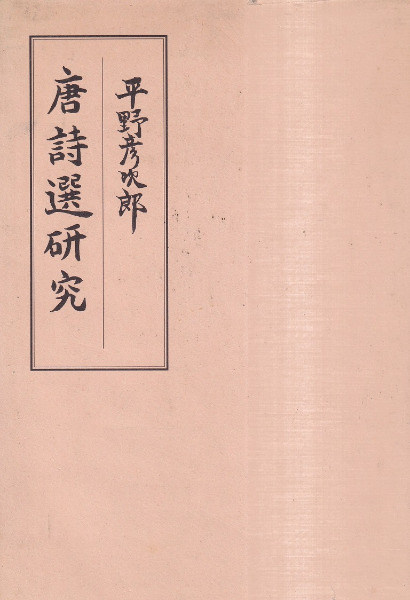 平野彦次郎
唐詩選研究